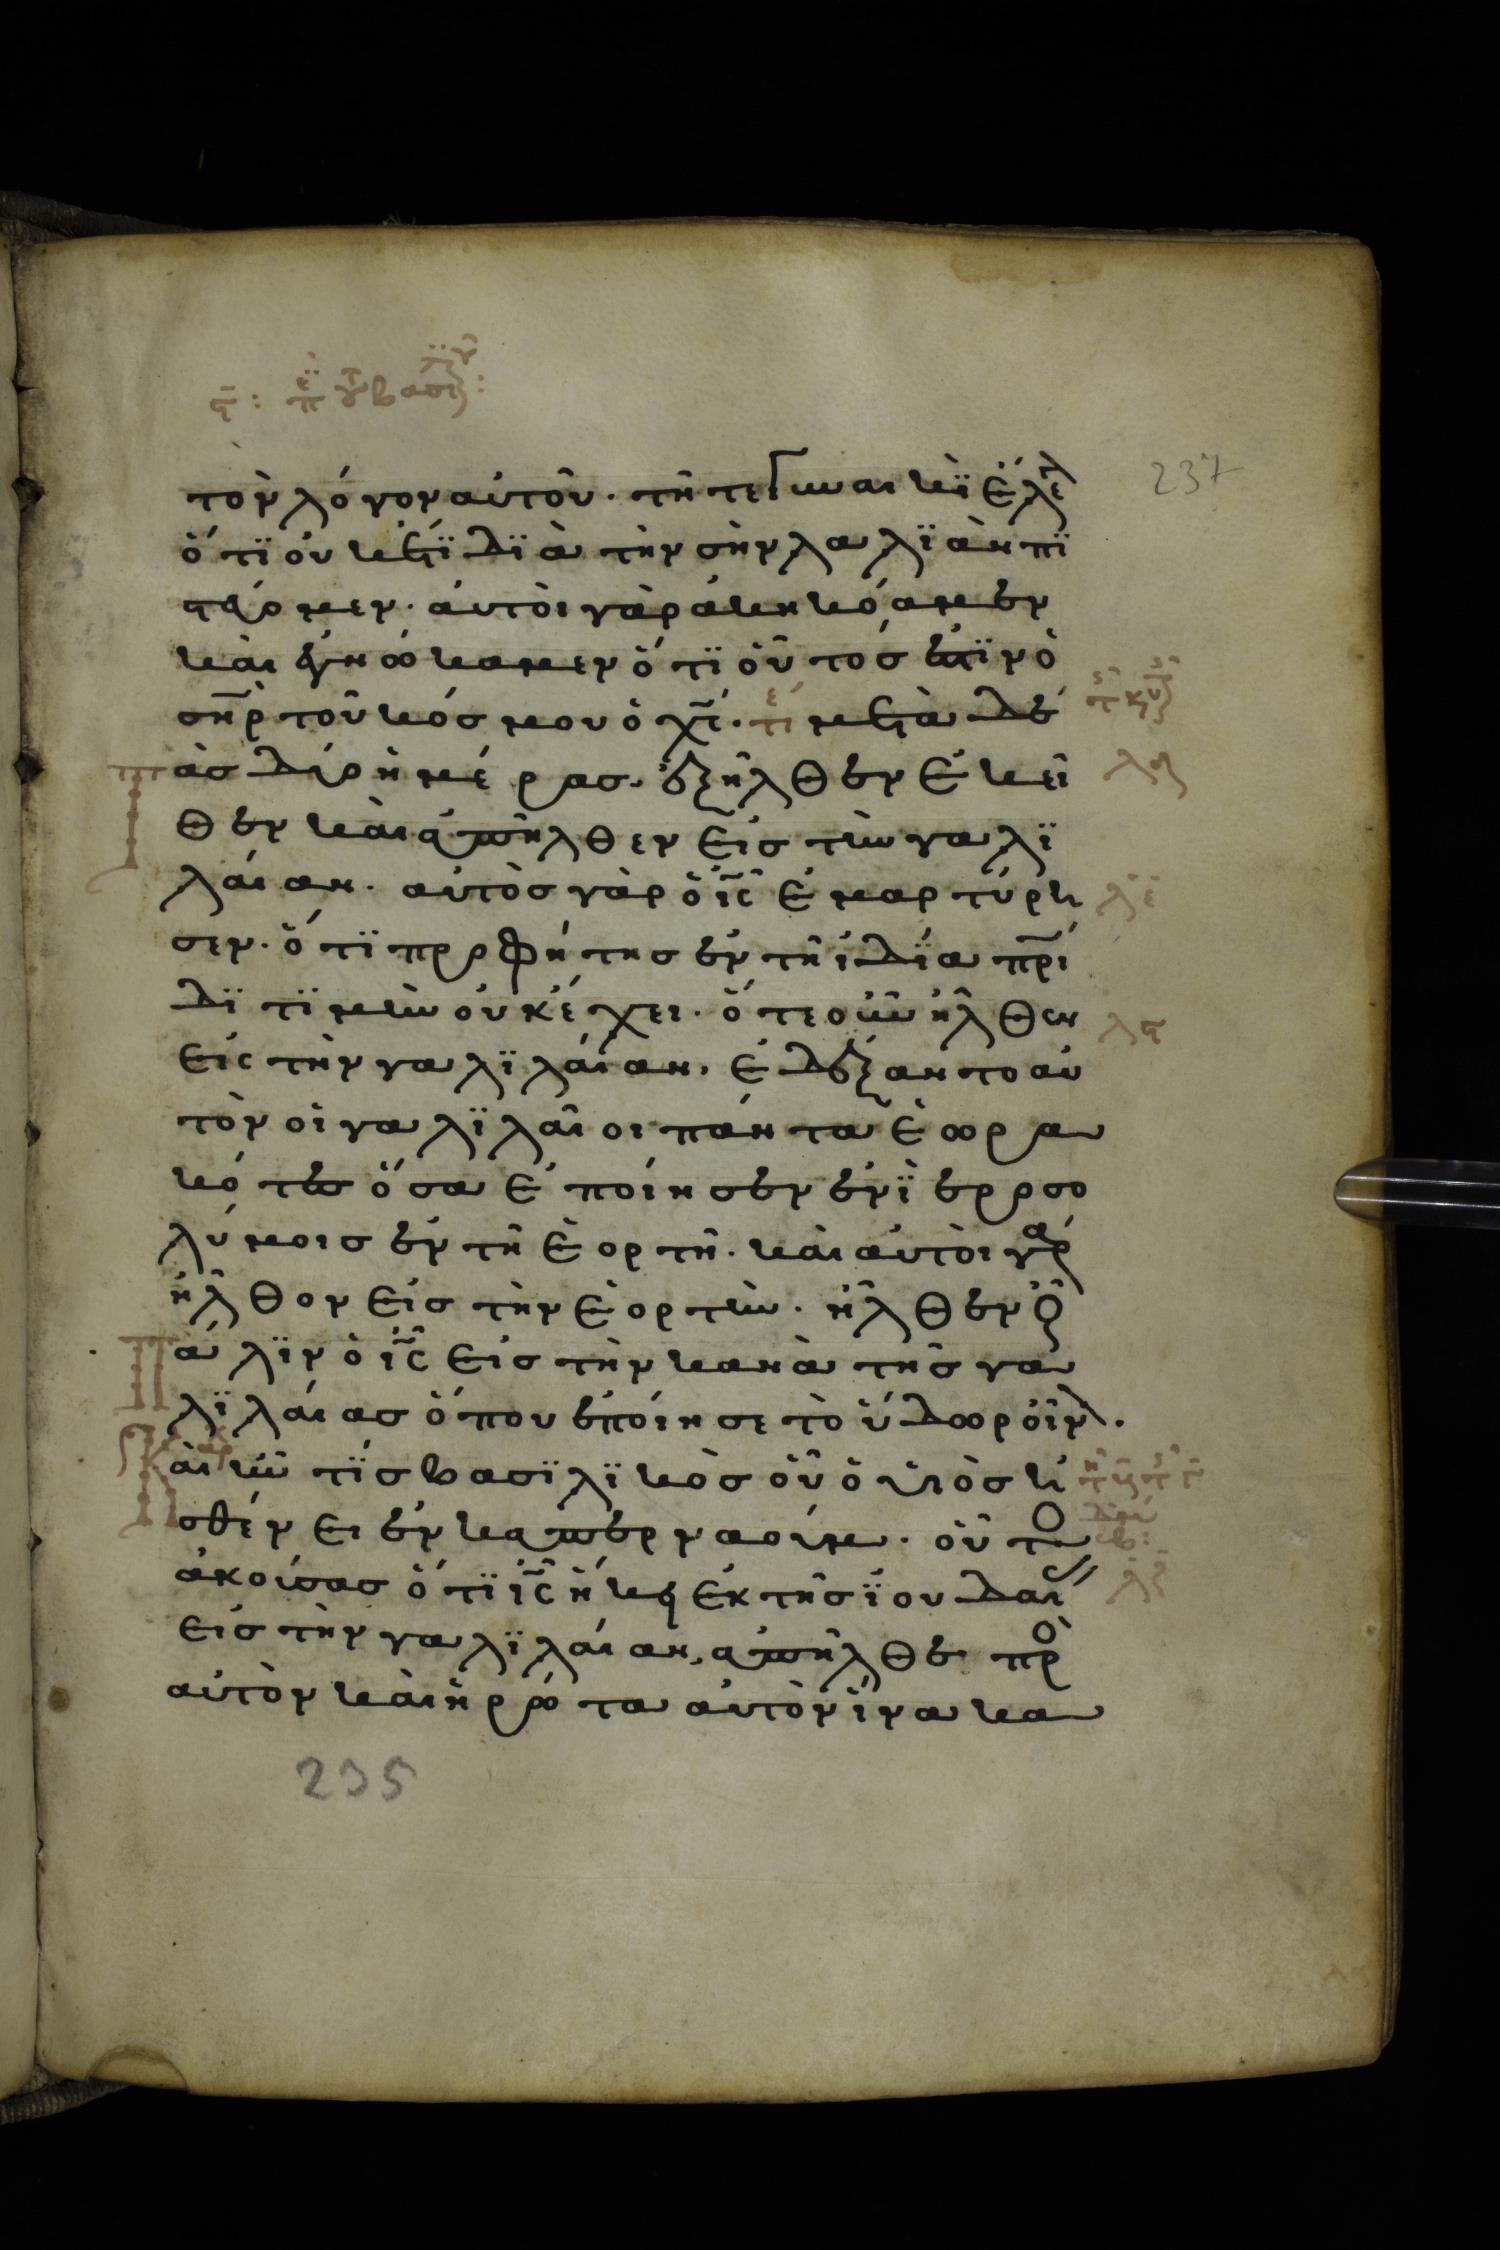 ϛ: πε τοῦ βασιλικοῦ:
237
τὸν λόγον αὐτοῦ. τῆ τε γυναικῒ ἔλε
ὅτϊ οὐκέτϊ δϊὰ τὴν σὴν λαλϊὰν πϊ
στεύομεν. αὐτοὶ γὰρ ἀκηκόαμεν
καὶ ἐγνώκαμεν ὅτϊ οὗτός ἐστϊν ὁ
σηρ τοῦ κόσμου ὁ χς. τε μετὰ δὲ
ὰσ δύο ἡμέρασ. ἐξῆλθεν ἐκεῖ
θεν καὶ ἀπῆλθεν εἰσ τὴν γαλϊ
λάιαν. αὐτὸσ γὰρ ὁ ις ἐμαρτύρη
σεν. ὅτϊ προφήτησ ἐν τῆ ἰδΐα πρι
δϊ τϊμὴν οὐκ ἔχει. ὅτε οὖν ἦλθεν
εἰς τὴν γαλϊλάιαν. ἐδέξαντο αὐ
τὸν οἱ γαλϊλαῖοι πάντα ἑωρα
κότεσ ὅσα ἐποίησεν ἐν ϊεροσο
λύμοισ ἐν τῆ ἑορτῆ. καὶ αὐτοὶ γὰρ
ἦλθον εἰσ τὴν ἑορτήν. ἦλθεν οὖ
άλϊν ὁ ις εἰσ τὴν κανὰ τῆσ γα
λϊλάιασ ὅπου ἐποίησε τὸ ὕδωρ οἶν.
αὶ ἦν τϊσ βασϊλϊκὸσ οὗ ὁ υἱὸσ ἠ
σθένει ἐν καπερναούμ. οὗτο
ἀκούσασ ὅτϊ ις ἥκει ἐκ τῆσ ϊουδαί
εἰσ τὴν γαλϊλάιαν, ἀπῆλθε πρὸ
αὐτὸν καὶ ἠρώτα αὐτὸν ἵνα κα
λδ
λε
λϛ
λζ
235